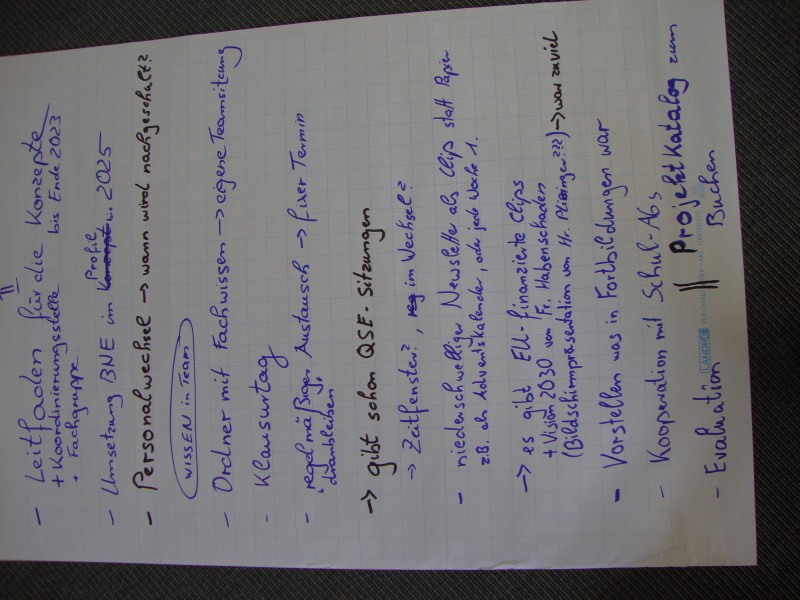 - Leitfaden für die Konzepte
+ Koordinierungsstelle bis Ende 2023
+ Fachgruppe
- Umsetzung BNE im Profil 2025
- Personalwechsel → wann wird nachgeschult?
WISSEN im Team
- Ordner mit Fachwissen → eigene Teamsitzung
- Klausurtag
- "regelmäßiger Austausch → fixer Termin
dranbleiben"
→ gibt schon QSE-Sitzungen
→ Zeitfenster?, im Wechsel?
- niederschwelliger Newsletter als Clip statt Papier
z.B. als Adventskalender, oder jede Woche 1.
→ es gibt EU-finanzierte Clips
+ Vision 2030 von Fr. Habenschaden
(Bildschirmpräsentation von Hr. ???) → war zuviel
- Vorstellen was in Fortbildungen war
- Kooperation mit Schul-AGs
- Evaluation || Projektkatalog zum
Buchen